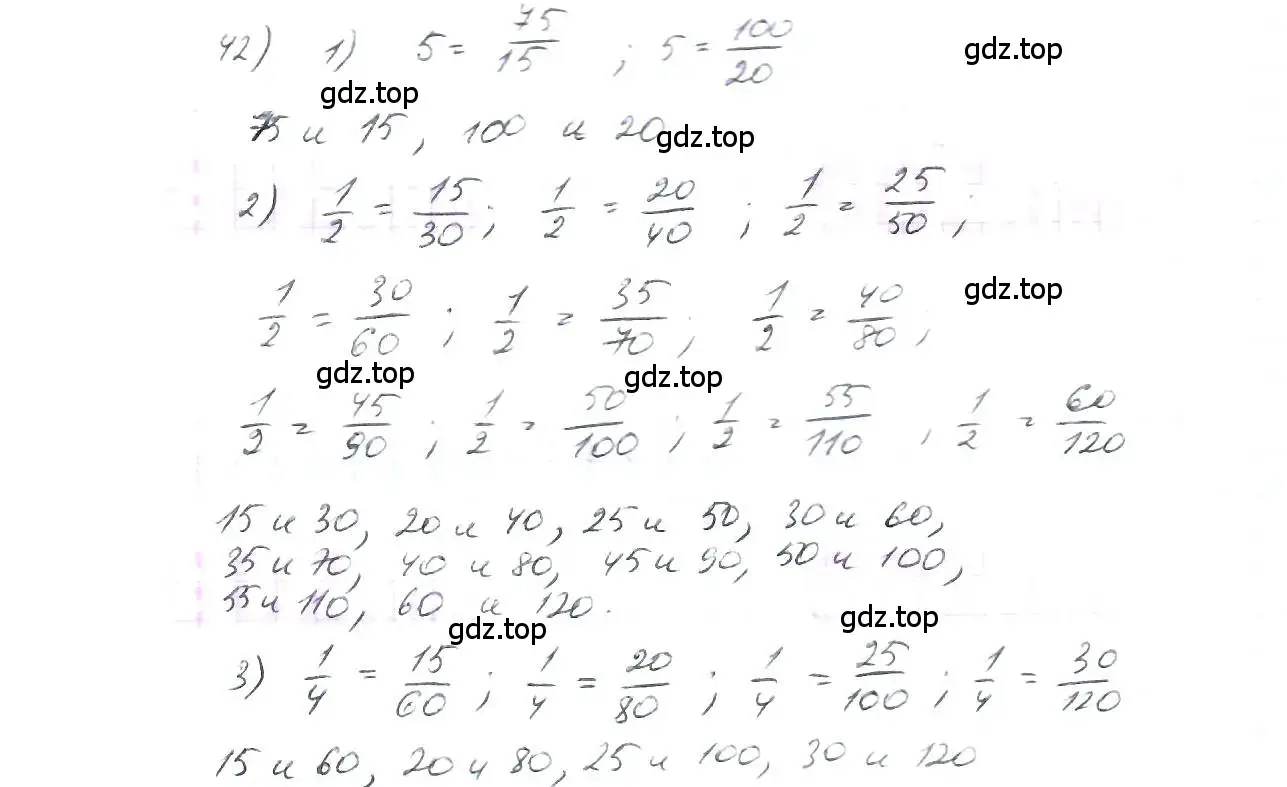 42) 1) 5 = 75/15 ; 5 = 100/20 gdz.top
gdz.top
75 и 15, 100 и 20 gdz.top
2) 1/2 = 15/30; 1/2 = 20/40 ; 1/2 = 25/50 ;
1/2 = 30/60 ; 1/2 = 35/70 ; 1/2 = 40/80 ; gdz.top
gdz.top gdz.top
1/2 = 45/90 ; 1/2 = 50/100 ; 1/2 = 55/110 , 1/2 = 60/120
15 и 30, 20 и 40, 25 и 50, 30 и 60,
35 и 70, 40 и 80, 45 и 90, 50 и 100,
55 и 110, 60 и 120.
gdz.top gdz.top
3) 1/4 = 15/60 ; 1/4 = 20/80 ; 1/4 = 25/100 ; 1/4 = 30/120
15 и 60, 20 и 80, 25 и 100, 30 и 120